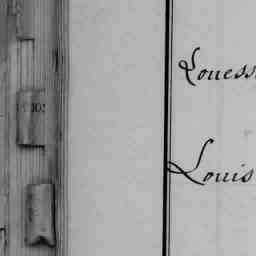 Louess
Louis